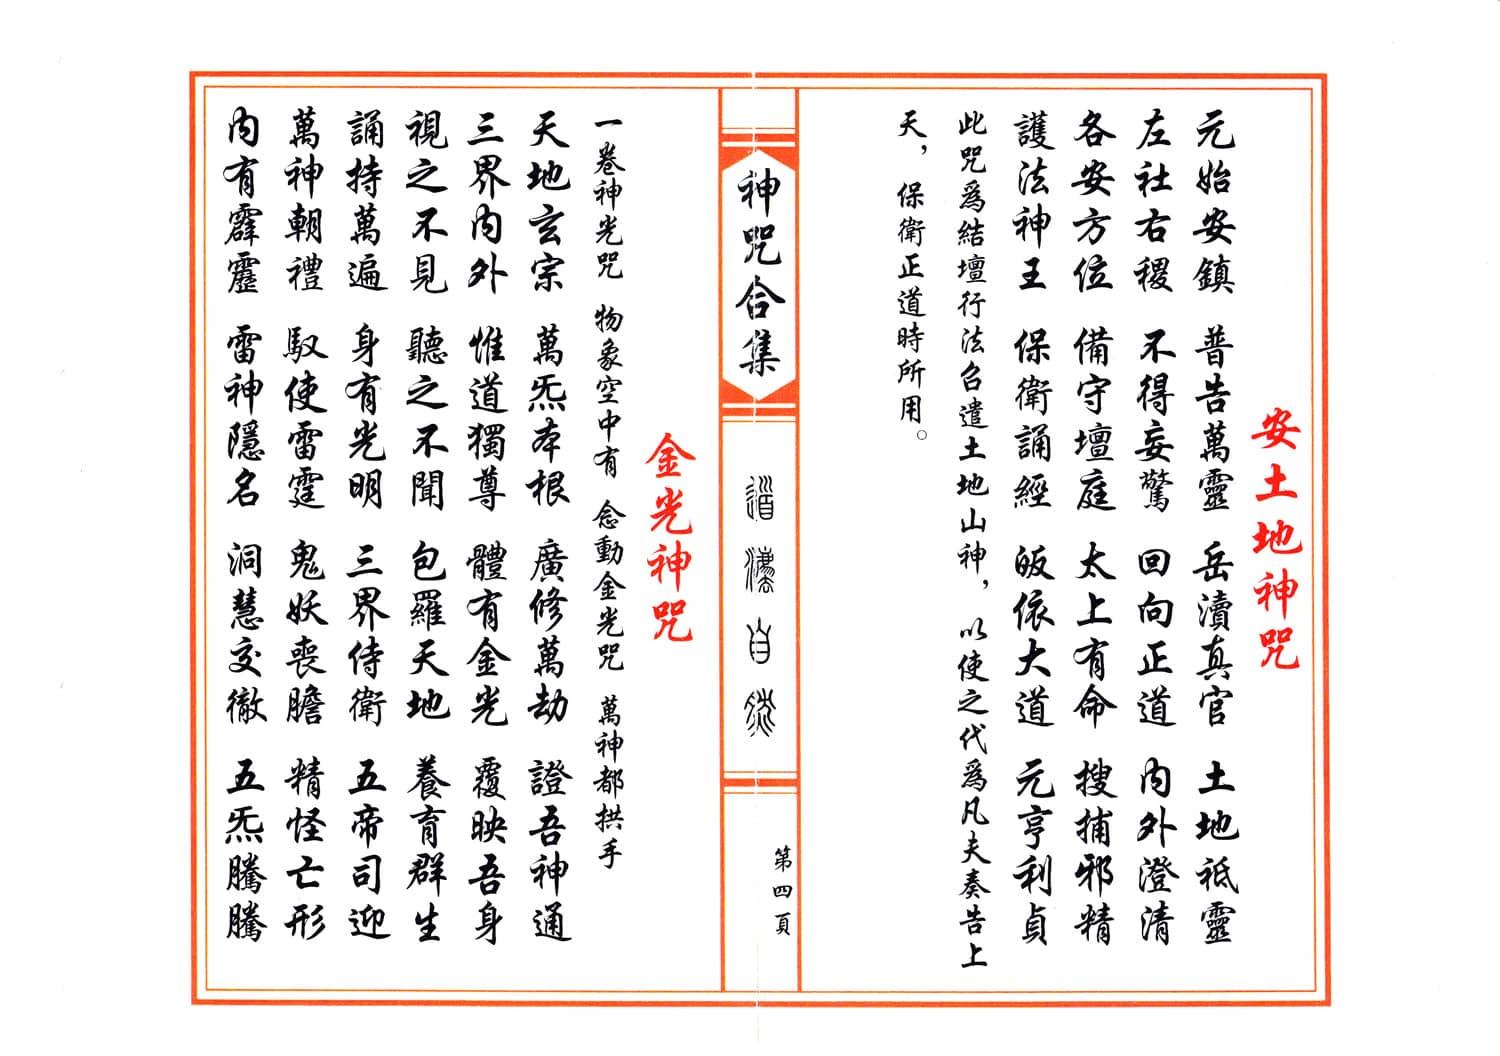 安土地神咒
元始安鎮 普告萬靈 岳瀆真官 土地袛靈
左社右稷 不得妄驚 回向正道 內外澄清
各安方位 備守壇庭 太上有命 搜捕邪精
護法神王 保衛誦經 皈依大道 元亨利貞
此咒為結壇行法召遣土地山神，以使之代為凡夫奏告上
天，保衛正道時所用。
神咒合集
道瀌自然
第四頁
金光神咒
一卷神光咒 物象空中有 念動金光咒 萬神都拱手
天地玄宗 萬炁本根 廣修萬劫 證吾神通
三界內外 惟道獨尊 體有金光 覆映吾身
視之不見 聽之不聞 包羅天地 養育群生
誦持萬遍 身有光明 三界侍衛 五帝司迎
萬神朝禮 馭使雷霆 鬼妖喪膽 精怪亡形
內有霹靂 雷神隱名 洞慧交徹 五炁騰騰